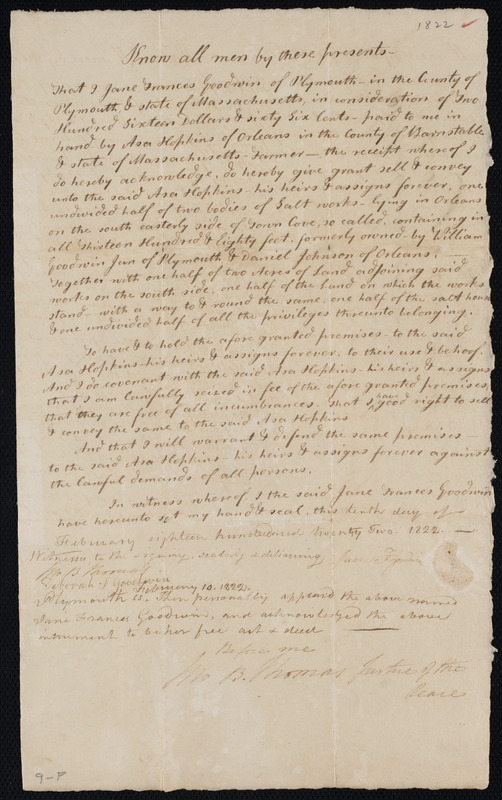 1822
Know all men by these presents
That I Jane Frances Goodwin of Plymouth - in the County of
Plymouth, & state of Massachusetts, in consideration of Two
Hundred Sixteen Dollars & sixty Six Cents - paid to me in
hand by Asa Hopkins of Orleans in the County of Barnstable
& state of Massachusetts - Farmer - the receipt whereof I
do hereby acknowledge, do hereby give grant sell & convey
unto the said Asa Hopkins - his heirs & assigns forever, one
undivided half of two bodies of Salt works - lying in Orleans
on the south easterly side of Town Cove, so called, containing in
all Thirteen Hundred & Eighty feet. formerly owned by William
Goodwin Jun of Plymouth & Daniel Johnson of Orleans.
Together with one half of two Acres of Land adjoining said
works on the south side, one half of the Land on which the works
stand - with a way to & round the same, one half of the salt house
& one undivided half of all the privileges thereunto belonging.
To have & to hold the afore granted premises - to the said
Asa Hopkins - his heirs & assigns forever, to their use & behoof.
And I do covenant with the said Asa Hopkins - his heirs & assigns
that I am lawfully seized in fee of the afore granted premises,
that they are free of all incumbrances. that I have good right to sell
& convey the same to the said Asa Hopkins
And that I will warrant & defend the same premises -
to the said Asa Hopkins - his heirs & assigns forever against
the lawful demands of all persons.
In witness whereof I the said Jane Frances Goodwin
have hereunto set my hand & seal. this tenth day of
February eighteen hundred twenty Two. 1822. -
Witnesses to the signing, sealing & delivering
Jno B. Thomas
Deborah Goodwin
Plymouth ss. February 10. 1822.
Then personally appeard the above named
Jane Frances Goodwin, and acknowledged the above
instrument to be her free act & deed
Before me
Jno B. Thomas Justice of the
Peace
9-P